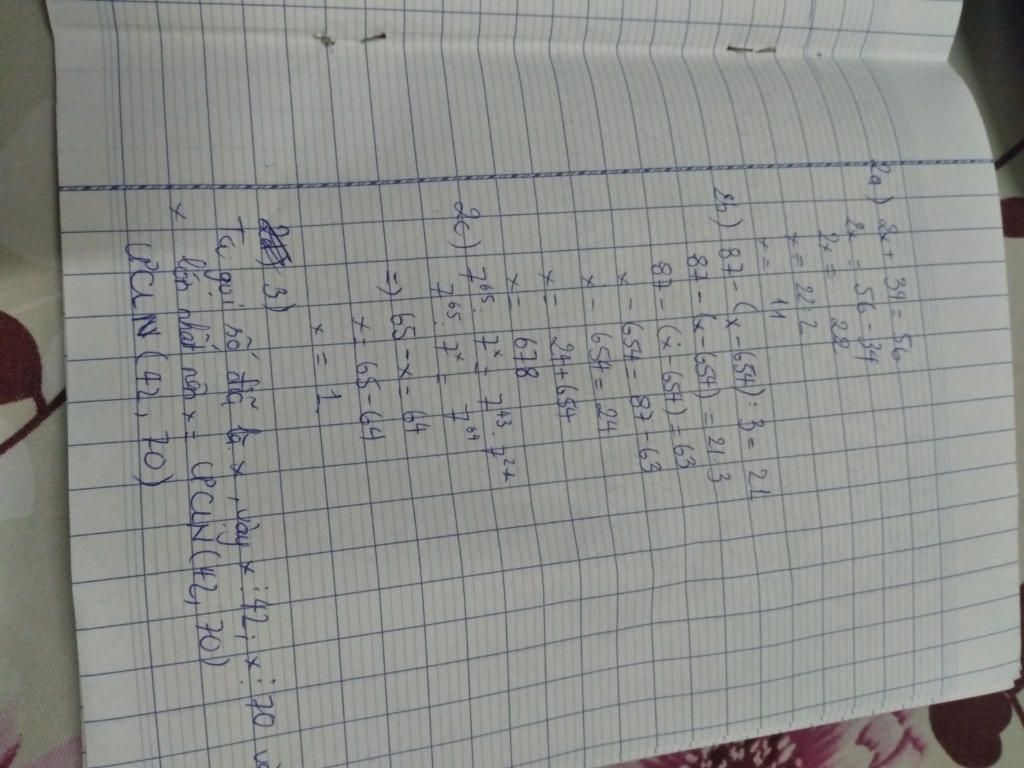 2a) 2x + 34 = 56
2x = 56 - 34
2x = 22
x = 22 : 2
x = 11
2b) 87 - (x - 654) : 3 = 21
87 - (x - 654) = 21.3
87 - (x - 654) = 63
x - 654 = 87 - 63
x - 654 = 24
x = 24 + 654
x = 678
2c) 7⁶⁵ : 7ˣ = 7⁴³ . 7²¹
7⁶⁵ : 7ˣ = 7⁶⁴
=> 65 - x = 64
x = 65 - 64
x = 1
3)
Ta gọi số đó là x, vậy x ⋮ 42, x ⋮ 70
x lớn nhất nên x = ƯCLN (42, 70)
ƯCLN (42, 70)